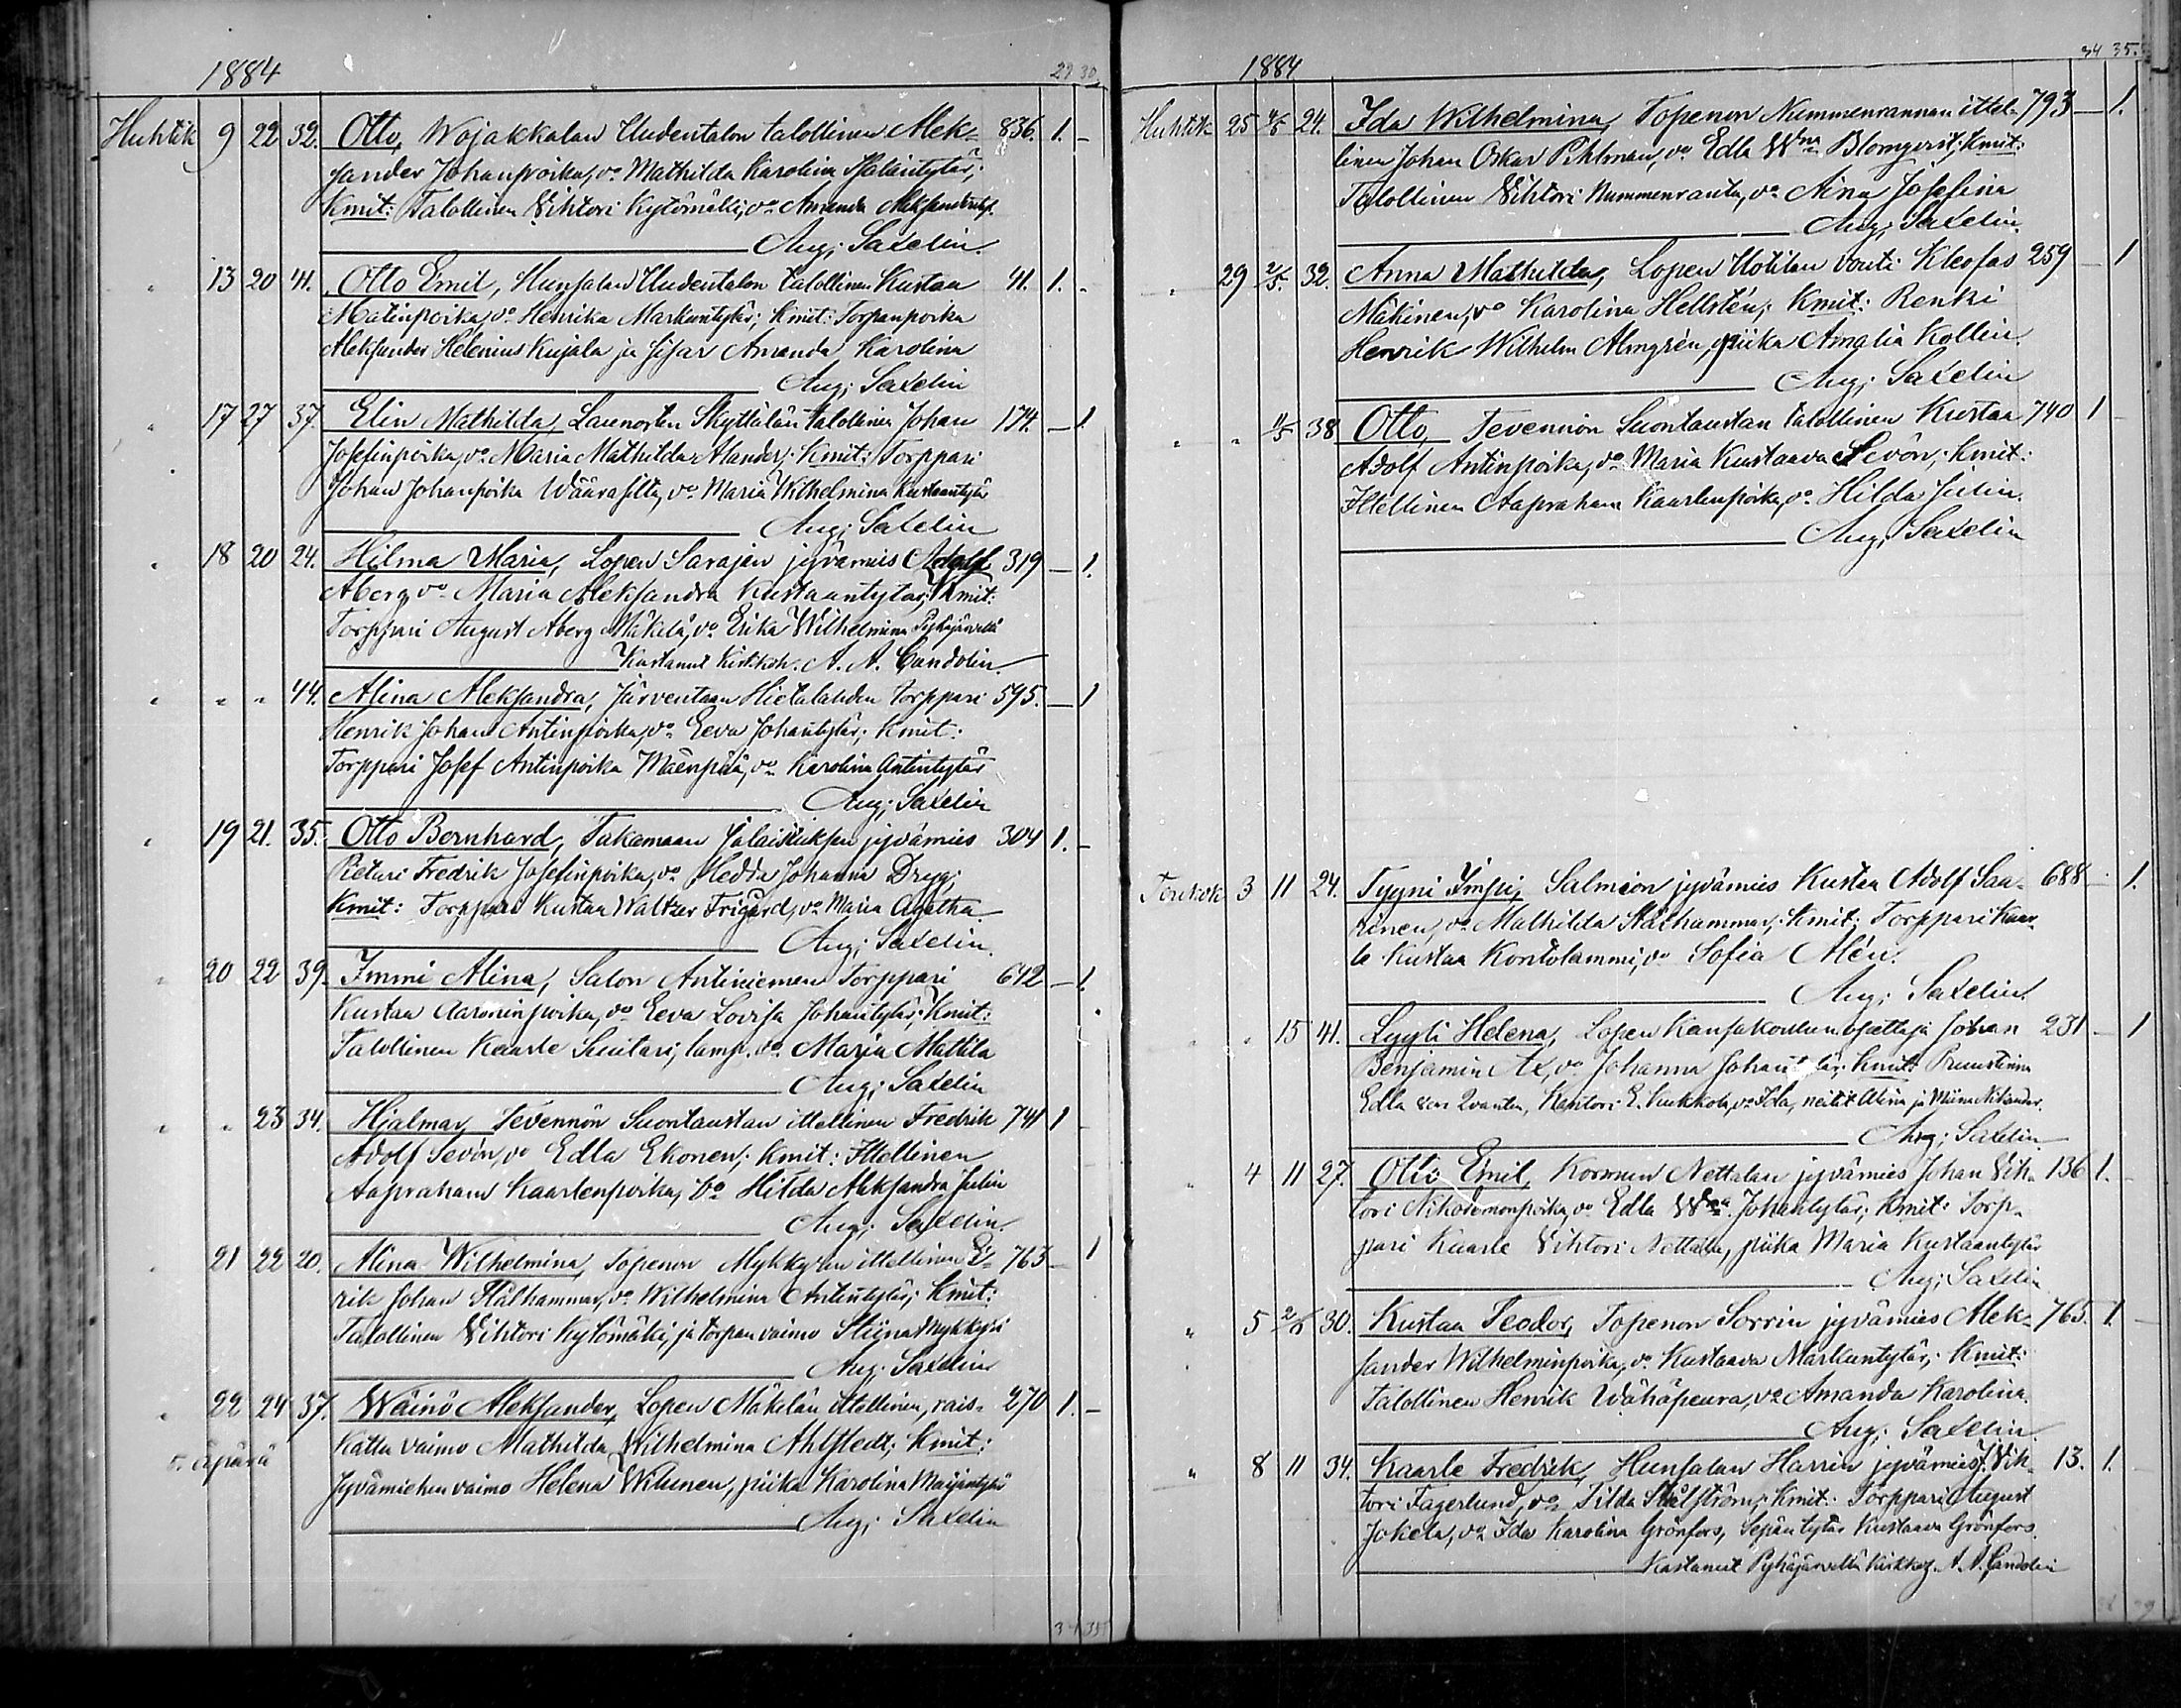 1884
29 30
Huhtik 9 22 32. Otto, Wojakkalan Uudentalon talollinen Alek- 836. 1. -
sander Johanpoika, vo Mathilda Karolina
Kmit: Talollinen Vihtori Kytömäki, vo Amanda
Aug; Saxelin
" 13 20 41. Otto Emil, Hunsalan Uudentalon talollinen Kustaa 41. 1. -
Matinpoika, vo Henrika Markuntytär; Kmit: Torpanpoika
Aleksander Helenius Kujala ja sisar Amanda Karolina
Aug; Saxelin
" 17 27 37. Elin Mathilda, Launosten Skyttälän talollinen Johan 174. - 1
Josefinpoika, vo Maria Mathilda Alander; Kmit: Torppari
Johan Johanpoika Wäärasilta, vo Maria Wilhelmina Kustaantytär
Aug; Saxelin
" 18 20 24. Hilma Maria, Lopen Sarajan jyvämies Adolf 319 - 1.
Aberg, vo Maria Aleksandra Kustaantytär; Kmit:
Torppari August Aberg Mäkelä, vo Erika Wilhelmina Pyhäjärveltä
Kastanut A. A. Candolin
" " " 44. Alina Aleksandra, Järventaan Hietalahden torppari 595. - 1
Henrik Johan Antinpoika, vo Eeva Johantytär; Kmit:
Torppari Josef Antinpoika Mäenpää, vo Karolina Antintytär
Aug; Saxelin
" 19 21. 35. Otto Bernhard, Takamaan jyvämies 304 1. -
Pietari Fredrik Josefinpoika, vo Hedda Johanna Dregg;
Kmit: Torppari Kustaa Waltzer Frigård, vo Maria Agatha
Aug; Saxelin
" 20 22 39. Immi Alina, Salon Antiniemen Torppari 642 - 1.
Kustaa Aaroninpoika, vo Eeva Lovisa Johantytär; Kmit:
Talollinen Kaarle vo Maria Mattila
Aug; Saxelin
" " 23 34. Hjalmar, Tevennön Suontaustan ittellinen Fredrik 741 1 -
Adolf Sevón, vo Edla Ekonen; Kmit: Ittellinen
Aaprahams Kaarlenpoika, vo Hilda Aleksandra Julin
Aug; Saxelin
" 21 22 20. Alina Wilhelmina, Topenon Mykkyrän ittellinen E- 763 - 1
rik Johan Stålhammar, vo Wilhelmina Antintytär; Kmit:
Talollinen Vihtori Kytömäki, ja torpan vaimo Stiina Mykkyri
Aug; Saxelin
" 22 24 37. Wäinö Aleksander, Lopen Mäkelän ittellinen, rais- 270 1. -
äpärä kattu vaimo Mathilda Wilhelmina Ahlstedt; Kmit:
Jyvämiehen vaimo Helena Wilunen, piika Karolina Maijantytär
Aug; Saxelin
34 35
1884
34 35.
Huhtik 25 4/5 24. Ida Wilhelmina, Topenon Nummenrannan ittel- 793 - 1.
linen Johan Oskar Pihlman, vo Edla Wna Blomqvist; Kmit:
Talollinen Vihtori Nummenranta, vo Aina Josefina
Aug; Saxelin
" 29 2/5. 32. Anna Mathilda, Lopen Uotilan vouti Kleofas 259 - 1
Mäkinen, vo Karolina Hellstén; Kmit: Renki
Henrik Wilhelm Almgrén, piika Amalia Kollin
Aug; Saxelin
" " 11/5 38 Otto, Tevennön Suontaustan talollinen Kustaa 740 1 -
Adolf Antinpoika, vo Maria Kustaava Sevón; Kmit:
Ittellinen Aapraham Kaarlenpoika, vo Hilda Julin.
Aug; Saxelin
Toukok 3 11 24. Tyyni Impi, Salmion jyvämies Kustaa Adolf Saa- 688 - 1.
rinen, vo Mathilda Stålhammar; Kmit: Torppari Kaar-
le Kustaa Kontolammi, vo Sofia Alén.
Aug; Saxelin
" " 15 41. Lyyti Helena, Lopen Kansakoulun opettaja Johan 231 - 1
Benjamin Ax, vo Johanna Johantytär; Kmit: Ruustinna
Edla Kantori E. Kukkola, vo Ida, neitit Alina ja Miina Nikander.
Aug; Saxelin
" 4 11 27. Otto Emil, Kormun Nettalan jyvämies Johan Vih- 136 1. -
tori Nikodemonpoika, vo Edla Wna Johantytär; Kmit: Torp-
pari Kaarle Vihtori Nettala, piika Maria Kustaantytär
Aug; Saxelin
" 5 2/6 30. Kustaa Teodor, Topenon Sorrin jyvämies Alek- 765. 1. -
sander Wilhelminpoika, vo Kustaava Markuntytär; Kmit:
Talollinen Henrik Wähäpeura, vo Amanda Karolina.
Aug; Saxelin
" 8 11 34. Kaarle Fredrik, Hunsalan Harrin jyvämies J. Vih- 13. 1. -
tori Fagerlund, vo Tilda Stålström; Kmit: Torppari August
Jokela, vo Ida Karolina Grönfors, Sepän tytär Kustaava Grönfors.
Kastanut Pyhäjärvellä A. A. Candolin